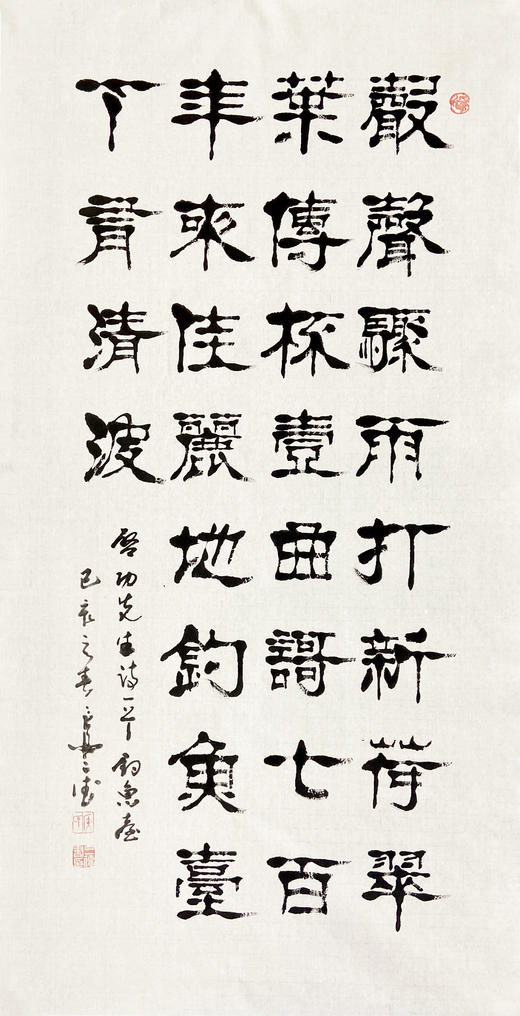 數聲驟雨打新荷翠
葉傳杯壹曲謌七百
年來佳麗地釣魚臺
下看清波
啓功先生詩一首釣魚臺
己亥之春